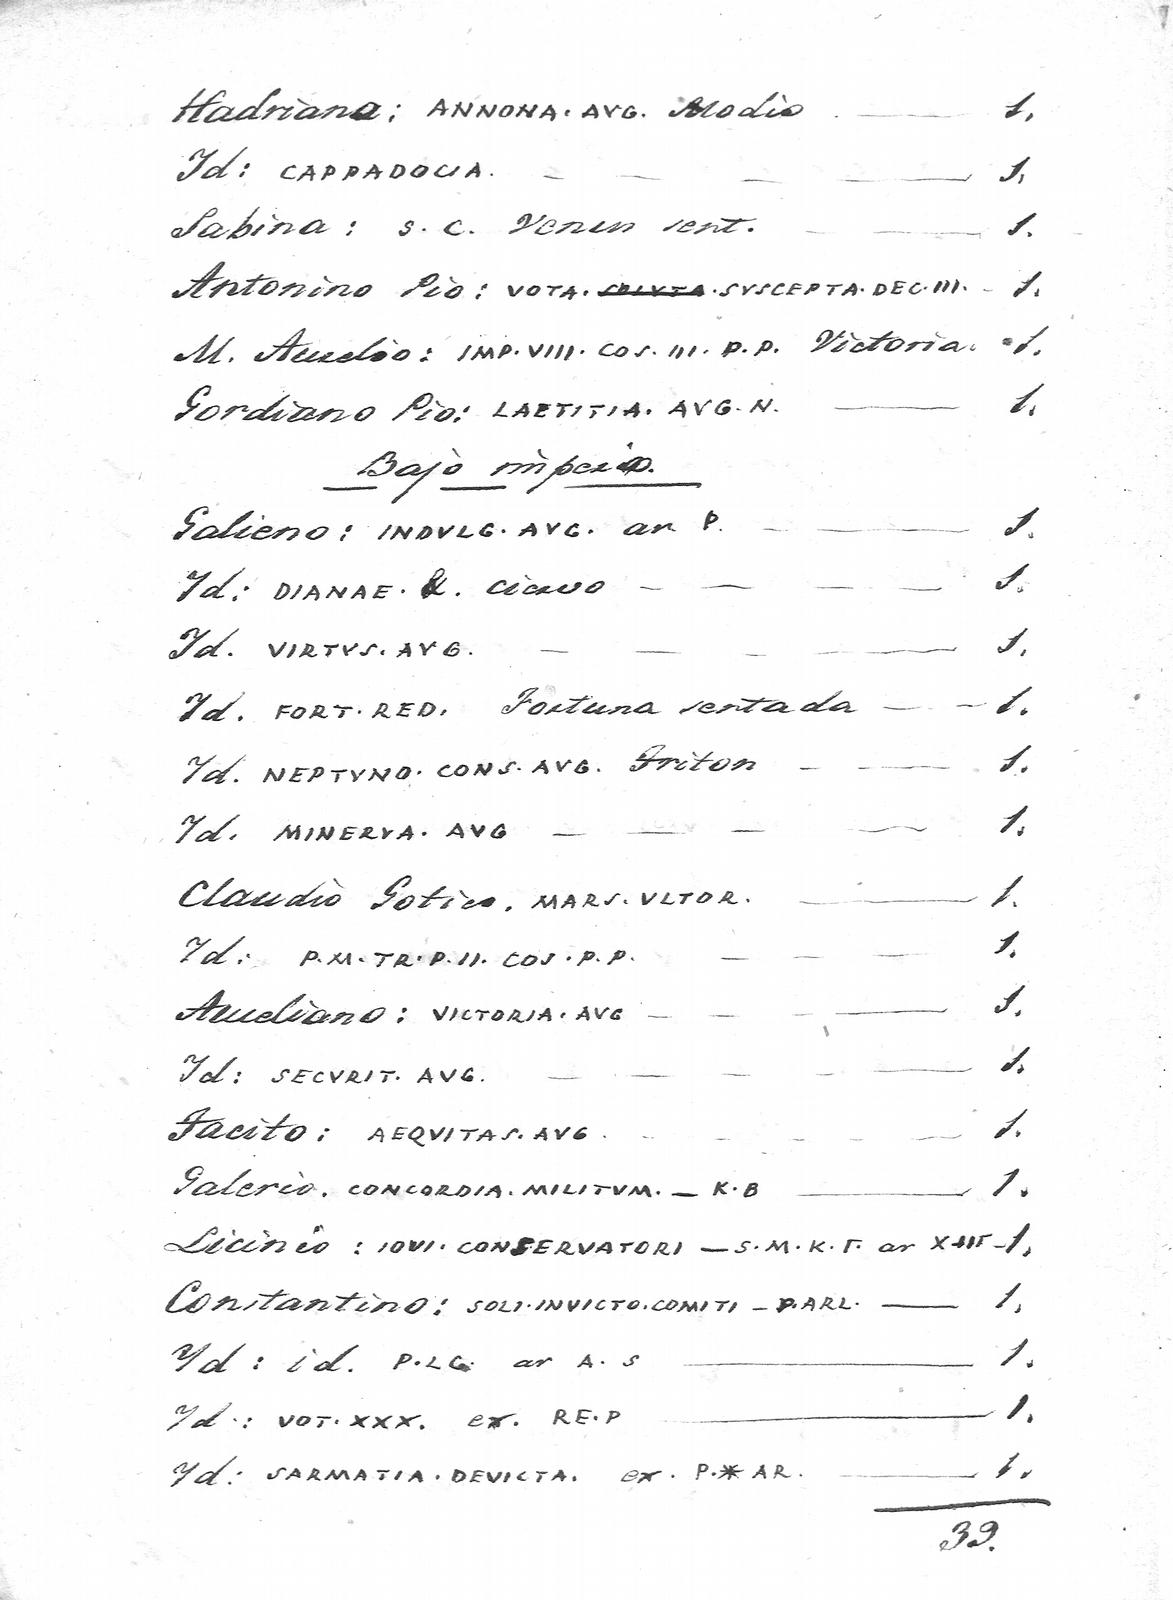 Hadriano; ANNONA. AVG. Modio — 1.
Id: CAPPADOCIA. — — — — 1.
Sabina: S. C. Venus sent. — — 1.
Antonino Pio: VOTA. ~~SOLVTA~~. SVSCEPTA. DEC. III. - 1.
M. Aurelio: IMP. VIII. COS. III. P. P. Victoria. - 1.
Gordiano Pio: LAETITIA. AVG. N. — 1.
Bajo imperio.
Galieno: INDVLG. AVG. ar P. — — 1.
Id: DIANAE. ciervo — — — — 1.
Id. VIRTVS. AVG. — — — — 1.
Id. FORT. RED. Fortuna sentada — — 1.
Id. NEPTVNO. CONS. AVG. Triton — — 1.
Id. MINERVA. AVG — — — — 1.
Claudio Gotico. MARS. VLTOR. — 1.
Id: P. M. TR. P. II. COS. P. P. — — — 1.
Aureliano: VICTORIA. AVG — — — — 1.
Id: SECVRIT. AVG. — — — — 1.
Tacito: AEQVITAS. AVG. — — — — 1.
Galerio. CONCORDIA. MILITVM. — K. B — 1.
Licinio: IOVI. CONSERVATORI — S. M. K. Γ. ar XIIΓ - 1.
Constantino: SOLI. INVICTO. COMITI — P. ARL. — 1.
Id: id. P. LG. ar A. S — 1.
Id: VOT. XXX. ex. RE. P — 1.
Id: SARMATIA. DEVICTA. ex. P. * AR. — 1.
39.